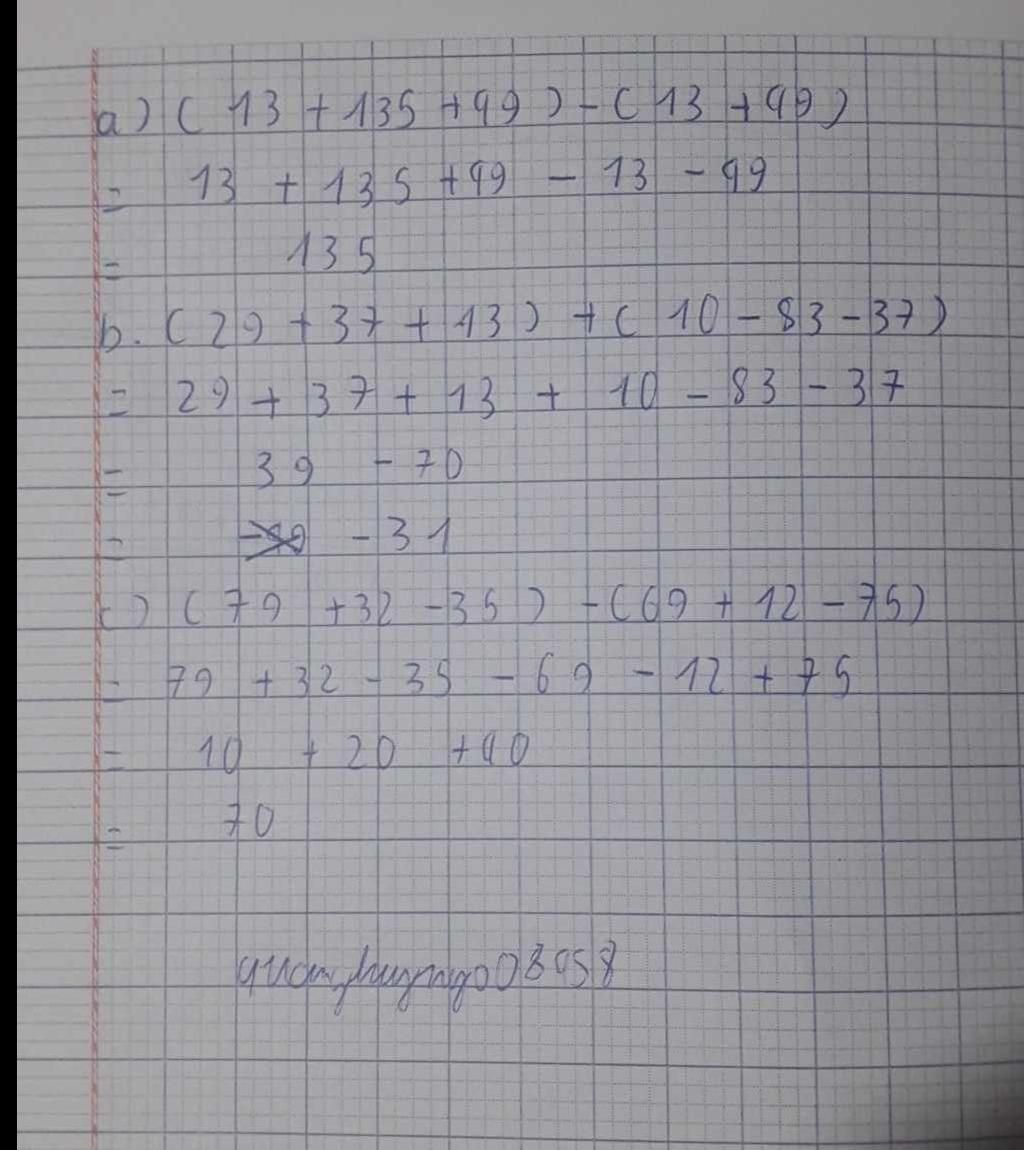 a) ( 13 + 135 + 49 ) - ( 13 + 49 )
= 13 + 135 + 49 - 13 - 49
= 135
b. ( 29 + 37 + 13 ) + ( 10 - 83 - 37 )
= 29 + 37 + 13 + 10 - 83 - 37
= 39 - 70
= - 31
c) ( 79 + 32 - 35 ) - ( 69 + 12 - 75 )
= 79 + 32 - 35 - 69 - 12 + 75
= 10 + 20 + 40
= 70